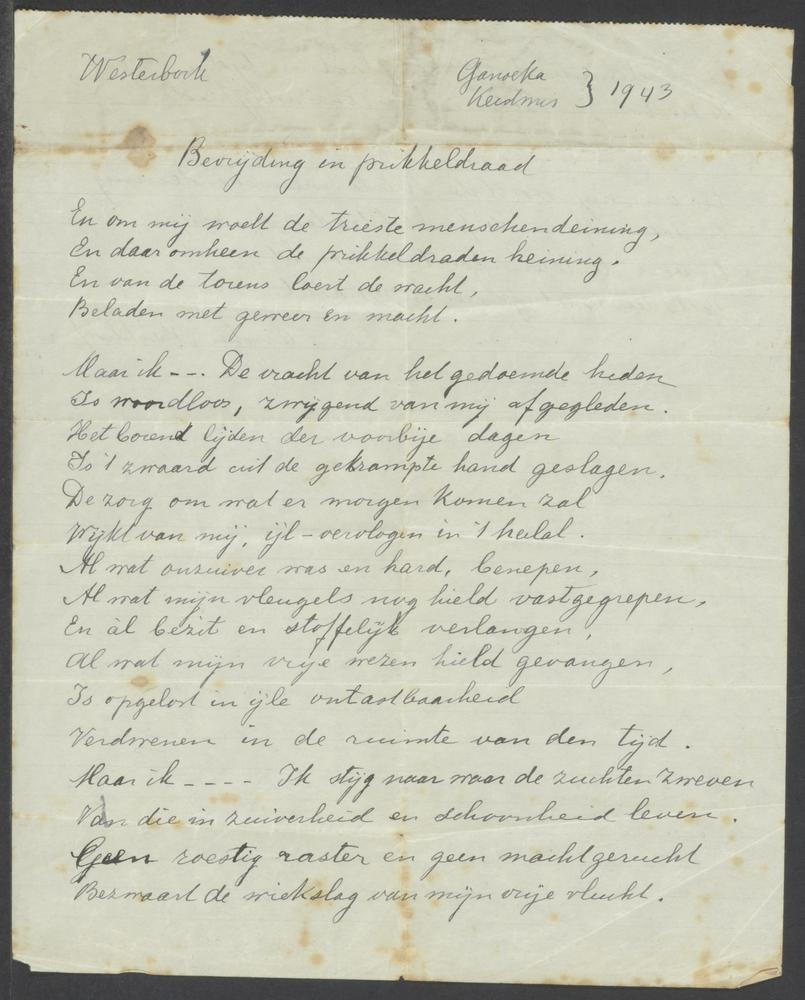 Westerbork
Ganoeka
Kerstmis } 1943
Bevrijding in prikkeldraad
En om mij woelt de trieste menschendeining,
En daaromheen de prikkeldraden heining.
En van de torens loert de wacht,
Beladen met geweer en macht.
Maar ik --- De vracht van het gedoemde heden
Is woordloos, zwijgend van mij afgegleden.
Het borend lijden der voorbije dagen
Is 't zwaard uit de gekrampte hand geslagen.
De zorg om wat er morgen komen zal
Wijkt van mij, ijl-vervlogen in 't heelal.
Al wat onzuiver was en hard, benepen,
Al wat mijn vleugels nog hield vastgegrepen,
En àl bezit en stoffelijk verlangen,
Al wat mijn vrije wezen hield gevangen,
Is opgelost in ijle ontastbaarheid
Verdwenen in de ruimte van den tijd.
Maar ik ---- Ik stijg naar waar de zuchten zweven
Van die in zuiverheid en schoonheid leven.
Geen roestig raster en geen machtgerucht
Bezwaart de wiekslag van mijn vrije vlucht.